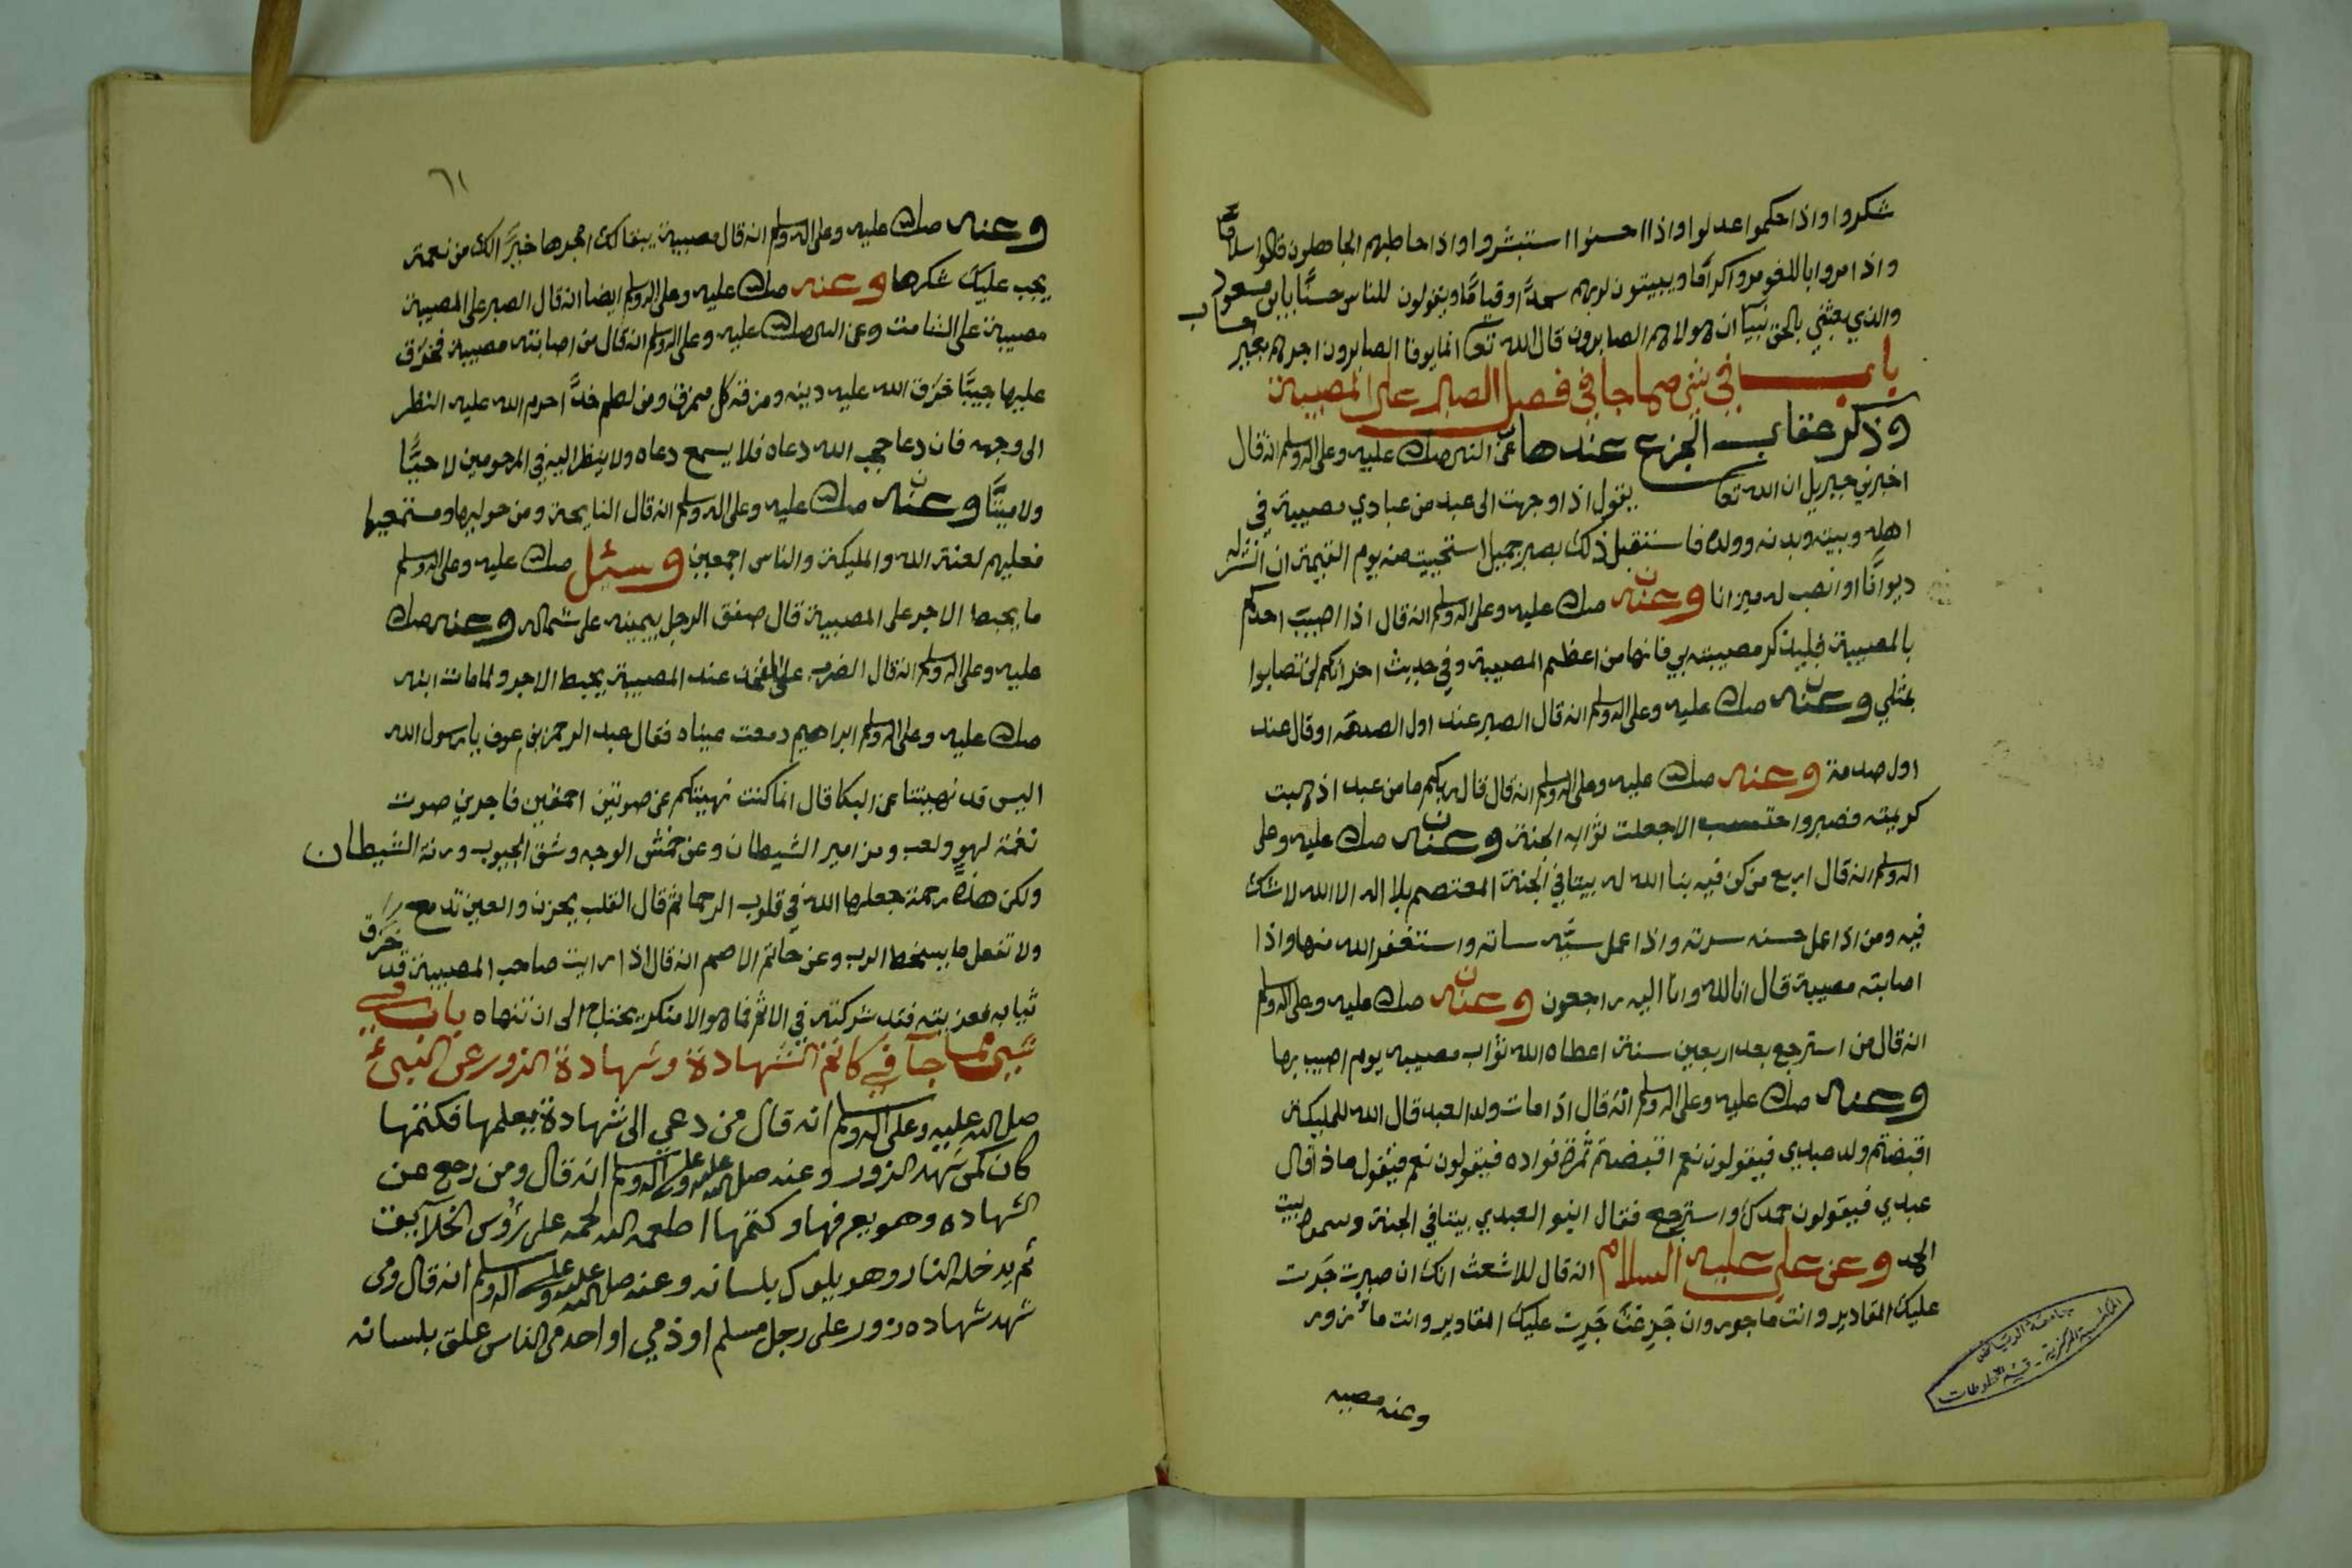 شكروا واذا حكموا عدلوا واذا احسنوا استبشروا واذا خاطبهم الجاهلون قالوا سلامًا
واذا مروا باللغو مروا كرامًا ويبيتون لربهم سجدًا وقيامًا ويقولون للناس حسنًا يا ابن مسعود
والذي بعثني بالحق نبيًا ان هولاء هم الصابرون قال الله تعا انما يوفا الصابرون اجرهم بغير حساب
باب في شي مما جا في فصل الصبر على المصيبة
وذكر عقاب الجزع عندها عن النبي صلى الله عليه وعلى اله وسلم انه قال
اخبرني جبريل ان الله تعا يقول اذا وجهت الى عبد من عبادي مصيبة في
اهله وبيته وبدنه وولده فاستقبل ذلك بصبر جميل استحييت منه يوم القيمة ان انشر له
ديوانًا او انصب له ميزانا وعنه صلى الله عليه وعلى اله وسلم انه قال اذا اصيب احدكم
بالمصيبة فليذكر مصيبته بي فانها من اعظم المصيبة وفي حديث اخر انكم لن تصابوا
بمثلي وعنه صلى الله عليه وعلى اله وسلم انه قال الصبر عند اول الصدمة او قال عند
اول صدمة وعنه صلى الله عليه وعلى اله وسلم انه قال قال ربكم ما من عبد اذهبت
كريمته فصبر واحتسب الا جعلت ثوابه الجنة وعنه صلى الله عليه وعلى
اله وسلم انه قال اربع من كن فيه بنا الله له بيتا في الجنة المعتصم بلا اله الا الله لا شك
فيه ومن اذا عمل حسنه سرته واذا عمل سيّه ساته واستغفر الله منها واذا
اصابته مصيبة قال انا لله وانا اليه راجعون وعنه صلى الله عليه وعلى اله وسلم
انه قال من استرجع بعد اربعين سنة اعطاه الله ثواب مصيبه يوم اصيب بها
وعنه صلى الله عليه وعلى اله وسلم انه قال اذا مات ولد العبد قال الله للمليكة
اقبضتم ولد عبدي فيقولون نعم اقبضتم ثمرة فواده فيقولون نعم فيقول ماذا قال
عبدي فيقولون حمدك واسترجع فقال ابنوا لعبدي بيتا في الجنة وسموه بيت
الحمد وعن علي عليه السلام انه قال للاشعث انك ان صبرت جَرت
عليك المقادير وانت ماجور وان جَزِعْتَ جَرت عليك المقادير وانت مأزور
وعنه مصيبه
جامعة الرياض
المكتبة المركزية - قسم المخطوطات
٦١
وعنه صلى الله عليه وعلى اله وسلم انه قال مصيبة يبقا لك اجرها خيرًا لك من نعمة
يجب عليك شكرها وعنه صلى الله عليه وعلى اله وسلم ايضا انه قال الصبر على المصيبة
مصيبة على الشامت وعن النبي صلى الله عليه وعلى اله وسلم انه قال من اصابته مصيبة فخرق
عليها جيبًا خرق الله عليه دينه ومزقه كل ممزق ومن لطم خدًّا حرم الله عليه النظر
الى وجهه فان دعا حجب الله دعاه فلا يسمع دعاه ولا ينظر اليه في المرحومين لا حيًّا
ولا ميتًا وعنه صلى الله عليه وعلى اله وسلم انه قال النايحة ومن حوليها ومستمعيها
فعليهم لعنة الله والمليكة والناس اجمعين وسئل صلى الله عليه وعلى اله وسلم
ما يحبط الاجر على المصيبة قال صفق الرجل بيمينه على شماله وعنه صلى الله
عليه وعلى اله وسلم انه قال الضرب على الفخذ عند المصيبة يحبط الاجر ولما مات ابنه
صلى الله عليه وعلى اله وسلم ابراهيم دمعت عيناه فقال عبد الرحمن بن عوف يا رسول الله
اليس قد نهيتنا عن البكا قال انما كنت نهيتكم عن صوتين احمقين فاجرين صوت
نغمة لهو ولعب ومزامير الشيطان وعن خمش الوجه وشق الجيوب ورنة الشيطان
ولكن هذه رحمة جعلها الله في قلوب الرحما ثم قال القلب يحزن والعين تدمع
ولا تفعل ما يسخط الرب وعن حاتم الاصم انه قال اذا رايت صاحب المصيبة قد خرق
ثيابه فعزيته فقد شركته في الاثم فما هو الا منكر يحتاج الى ان تنهاه باب في
شي مما جآ في كاتم الشهادة وشهادة الزور عن النبي
صلى الله عليه وعلى اله وسلم انه قال من دعي الى شهادة يعلمها فكتمها
كان كمن شهد الزور وعنه صلى الله عليه وعلى اله وسلم انه قال ومن رجع عن
الشهاده وهو يعرفها وكتمها اطعمه الله لحمه على رؤوس الخلآيق
ثم يدخله النار وهو يلوك بلسانه وعنه صلى الله عليه وعلى اله وسلم انه قال ومن
شهد شهاده زور على رجل مسلم او ذمي او احد من الناس علق بلسانه